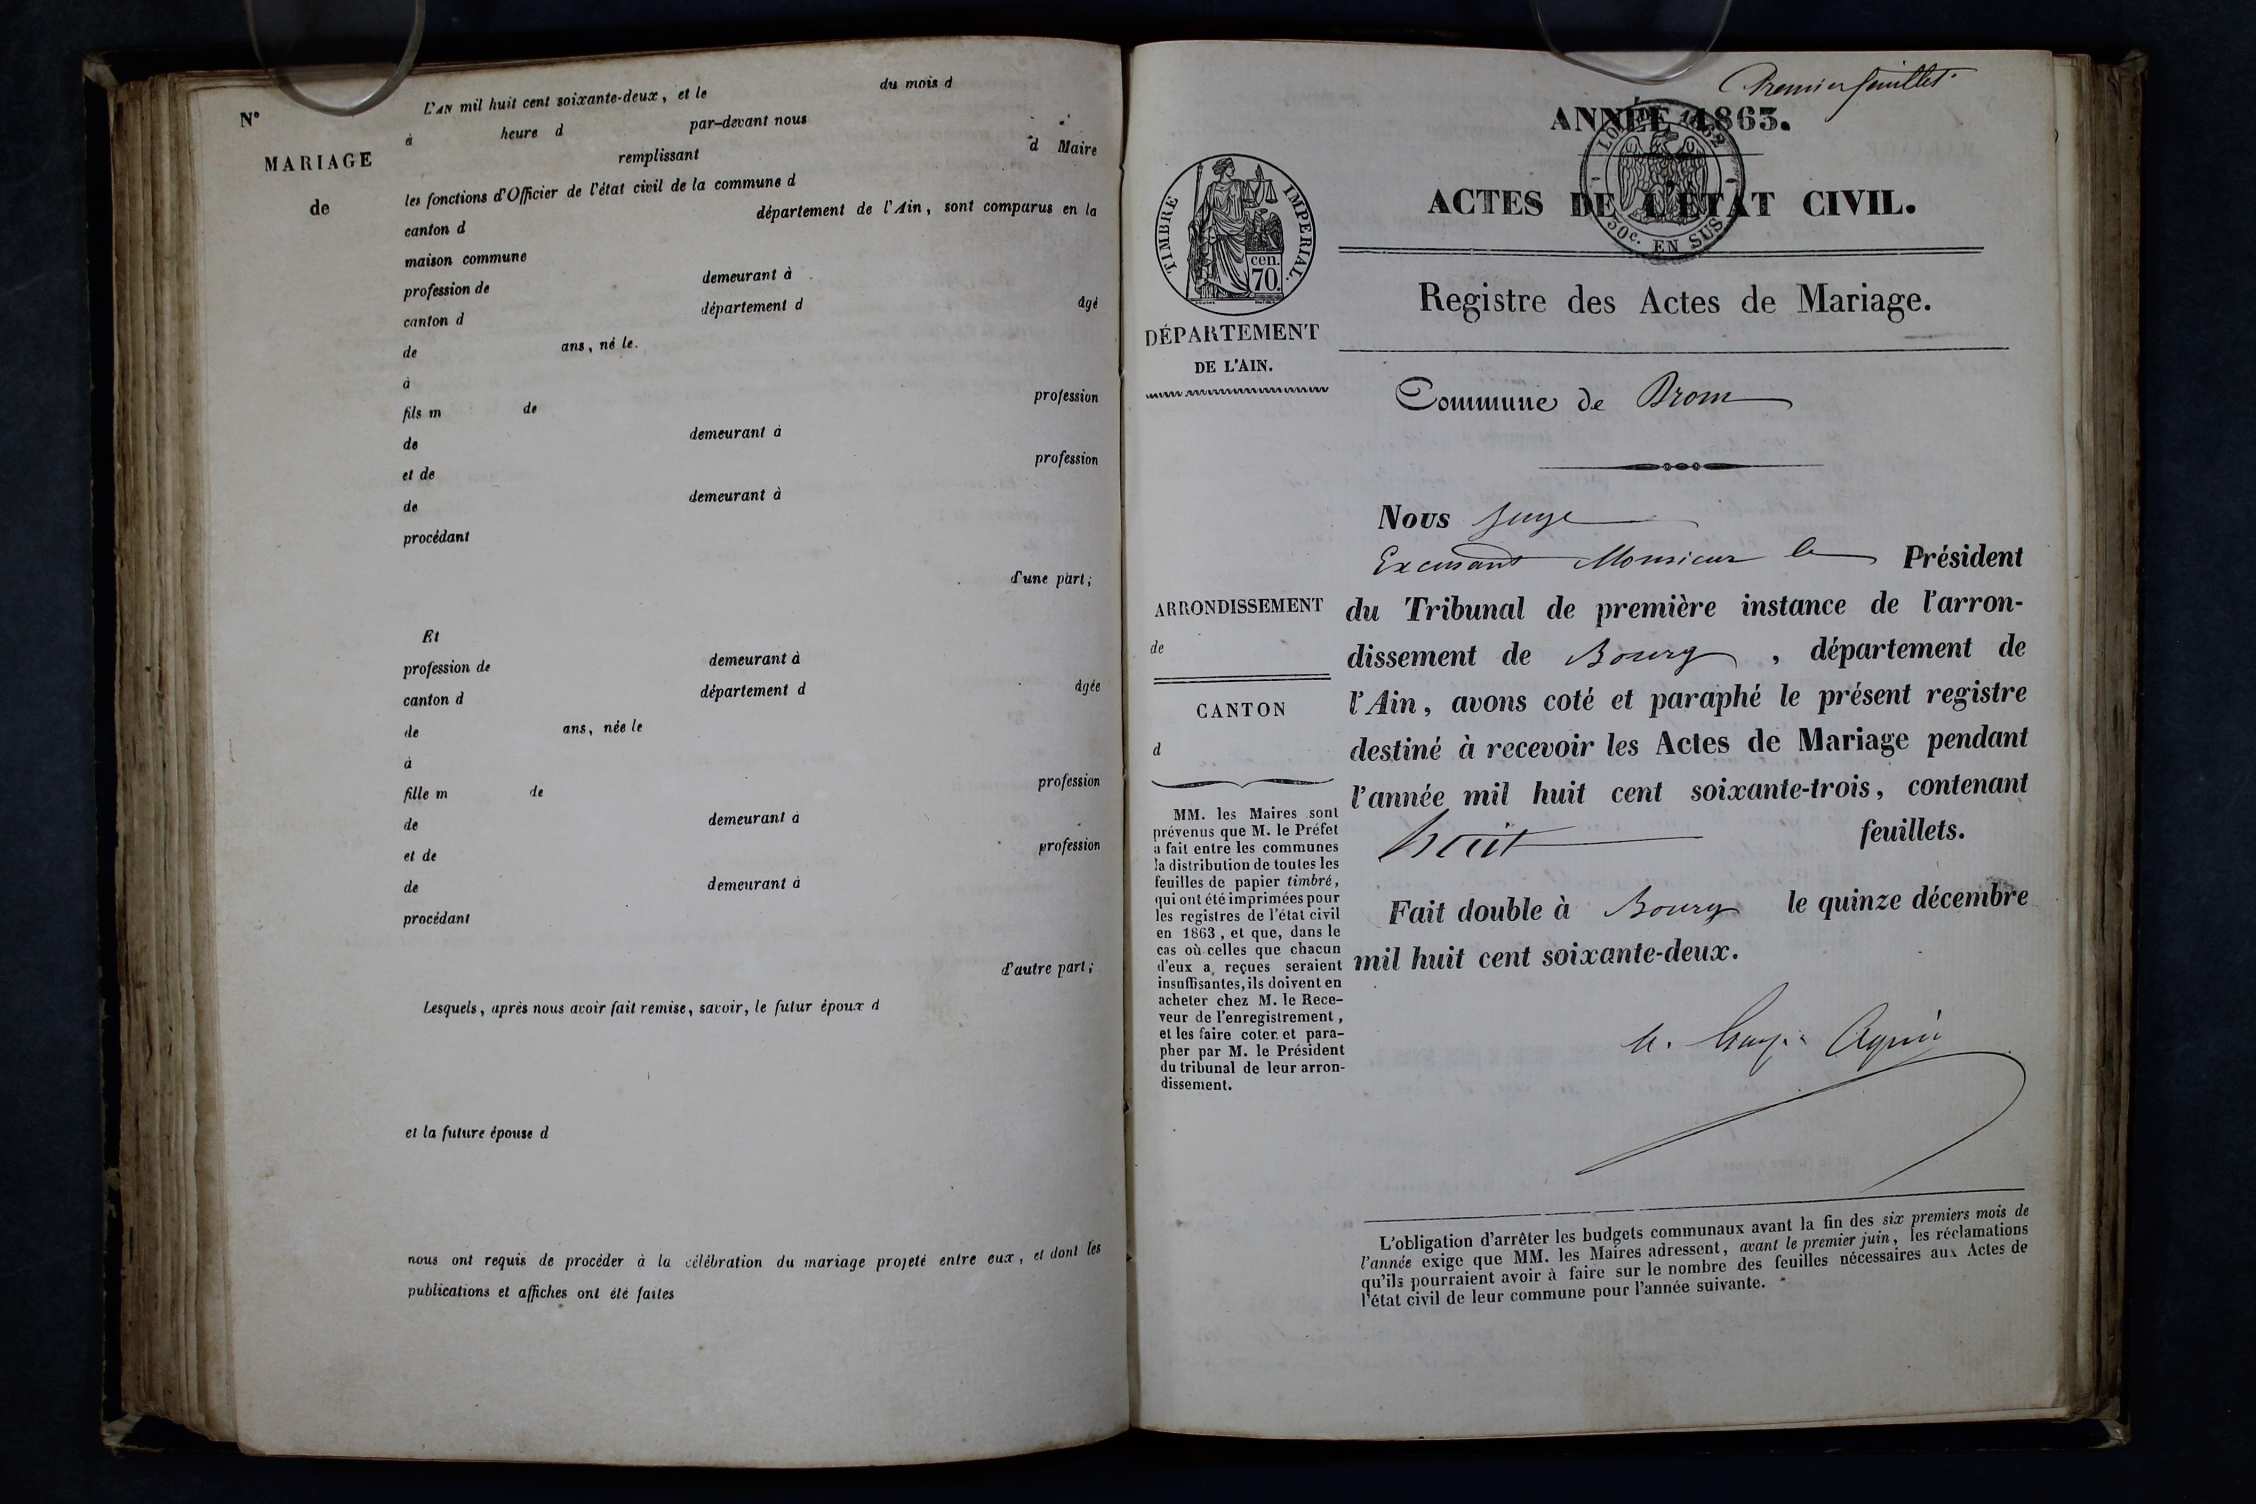 N°
MARIAGE
de
L'AN mil huit cent soixante-deux, et le du mois d
à heure d par-devant nous
remplissant d Maire
les fonctions d'Officier de l'état civil de la commune d
canton d département de l'Ain, sont comparus en la
maison commune
profession de demeurant à
canton d département d âgé
de ans, né le
à
fils m de profession
de demeurant à
et de profession
de demeurant à
procédant
d'une part;
Et
profession de demeurant à
canton d département d âgée
de ans, née le
à
fille m de profession
de demeurant à
et de profession
de demeurant à
procédant
d'autre part;
Lesquels, après nous avoir fait remise, savoir, le futur époux d
et la future épouse d
nous ont requis de procéder à la célébration du mariage projeté entre eux, et dont les
publications et affiches ont été faites
Premier feuillet
ANNÉE 1863.
ACTES DE L'ÉTAT CIVIL.
EN SUS
TIMBRE IMPERIAL.
cen.
70.
DÉPARTEMENT
DE L'AIN.
Registre des Actes de Mariage.
Commune de Drom
ARRONDISSEMENT
de
CANTON
d
MM. les Maires sont
prévenus que M. le Préfet
a fait entre les communes
la distribution de toutes les
feuilles de papier timbré,
qui ont été imprimées pour
les registres de l'état civil
en 1863, et que, dans le
cas où celles que chacun
d'eux a reçues seraient
insuffisantes, ils doivent en
acheter chez M. le Rece-
veur de l'enregistrement,
et les faire coter et para-
pher par M. le Président
du tribunal de leur arron-
dissement.
Nous Juge
Excusant Monsieur le Président
du Tribunal de première instance de l'arron-
dissement de Bourg, département de
l'Ain, avons coté et paraphé le présent registre
destiné à recevoir les Actes de Mariage pendant
l'année mil huit cent soixante-trois, contenant
huit feuillets.
Fait double à Bourg le quinze décembre
mil huit cent soixante-deux.
L'obligation d'arrêter les budgets communaux avant la fin des six premiers mois de
l'année exige que MM. les Maires adressent, avant le premier juin, les réclamations
qu'ils pourraient avoir à faire sur le nombre des feuilles nécessaires aux Actes de
l'état civil de leur commune pour l'année suivante.